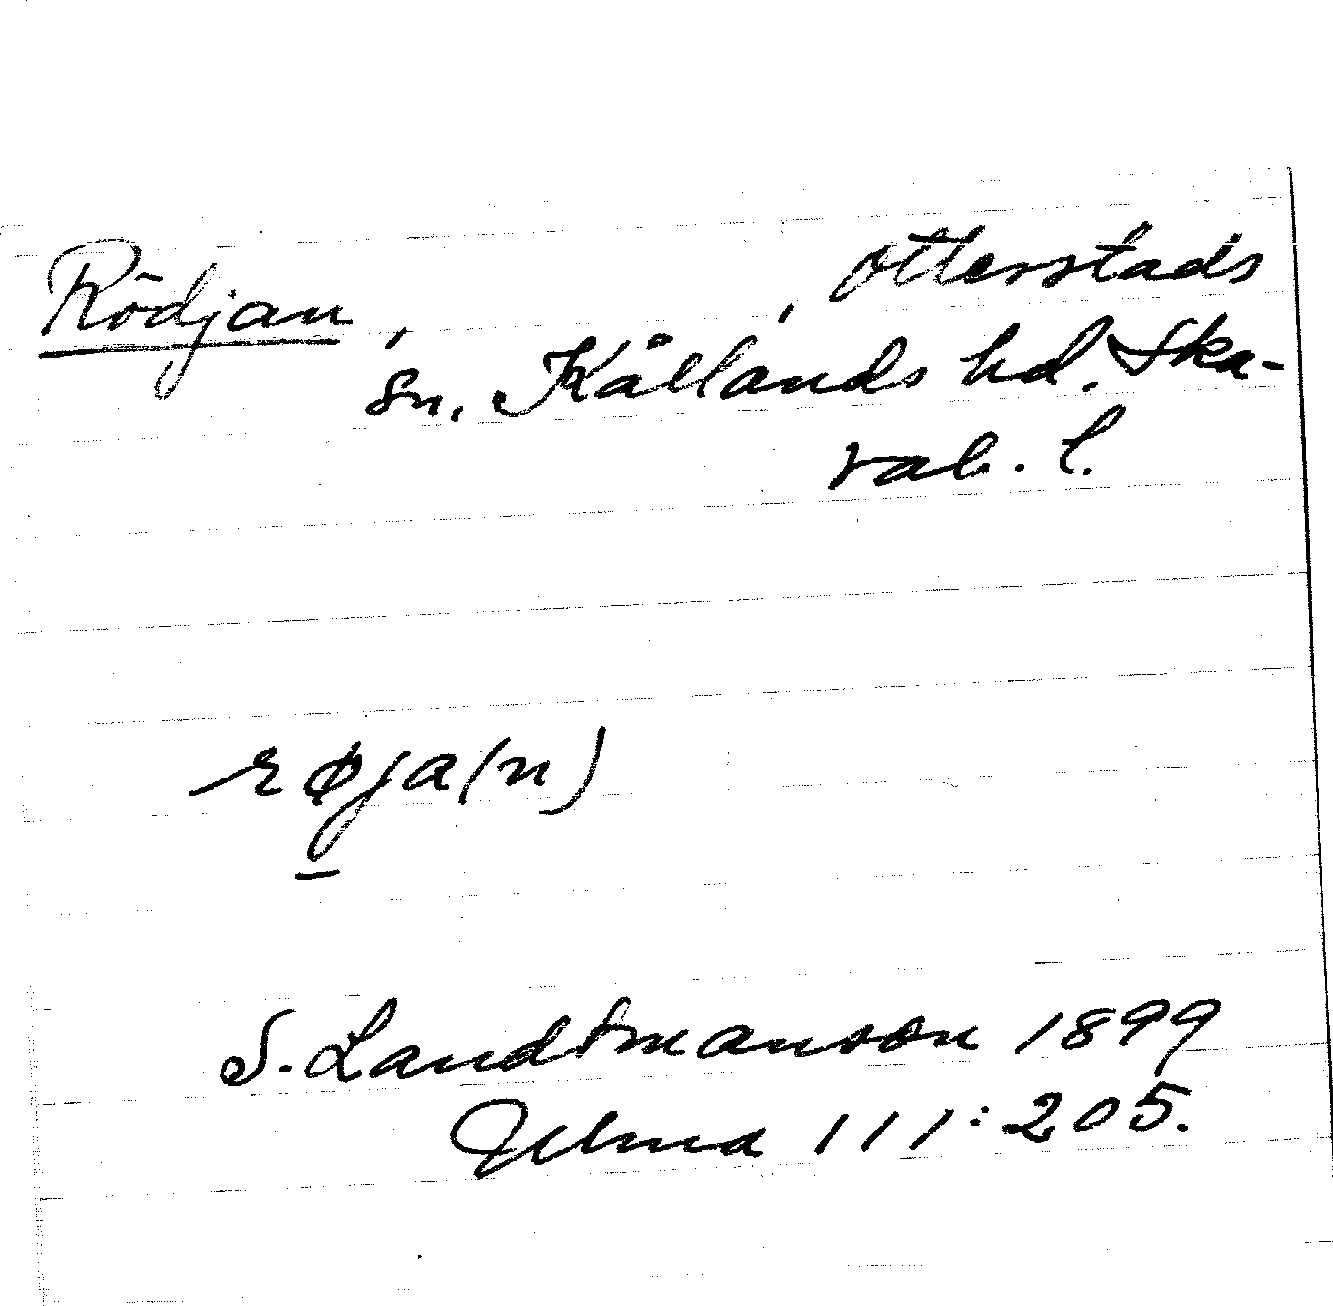 Rödjan, , Otterstads
sn. Kållands hd. Ska-
rab. l.
røja(n)
S. Landtmanson 1899
Ulma 111:205.